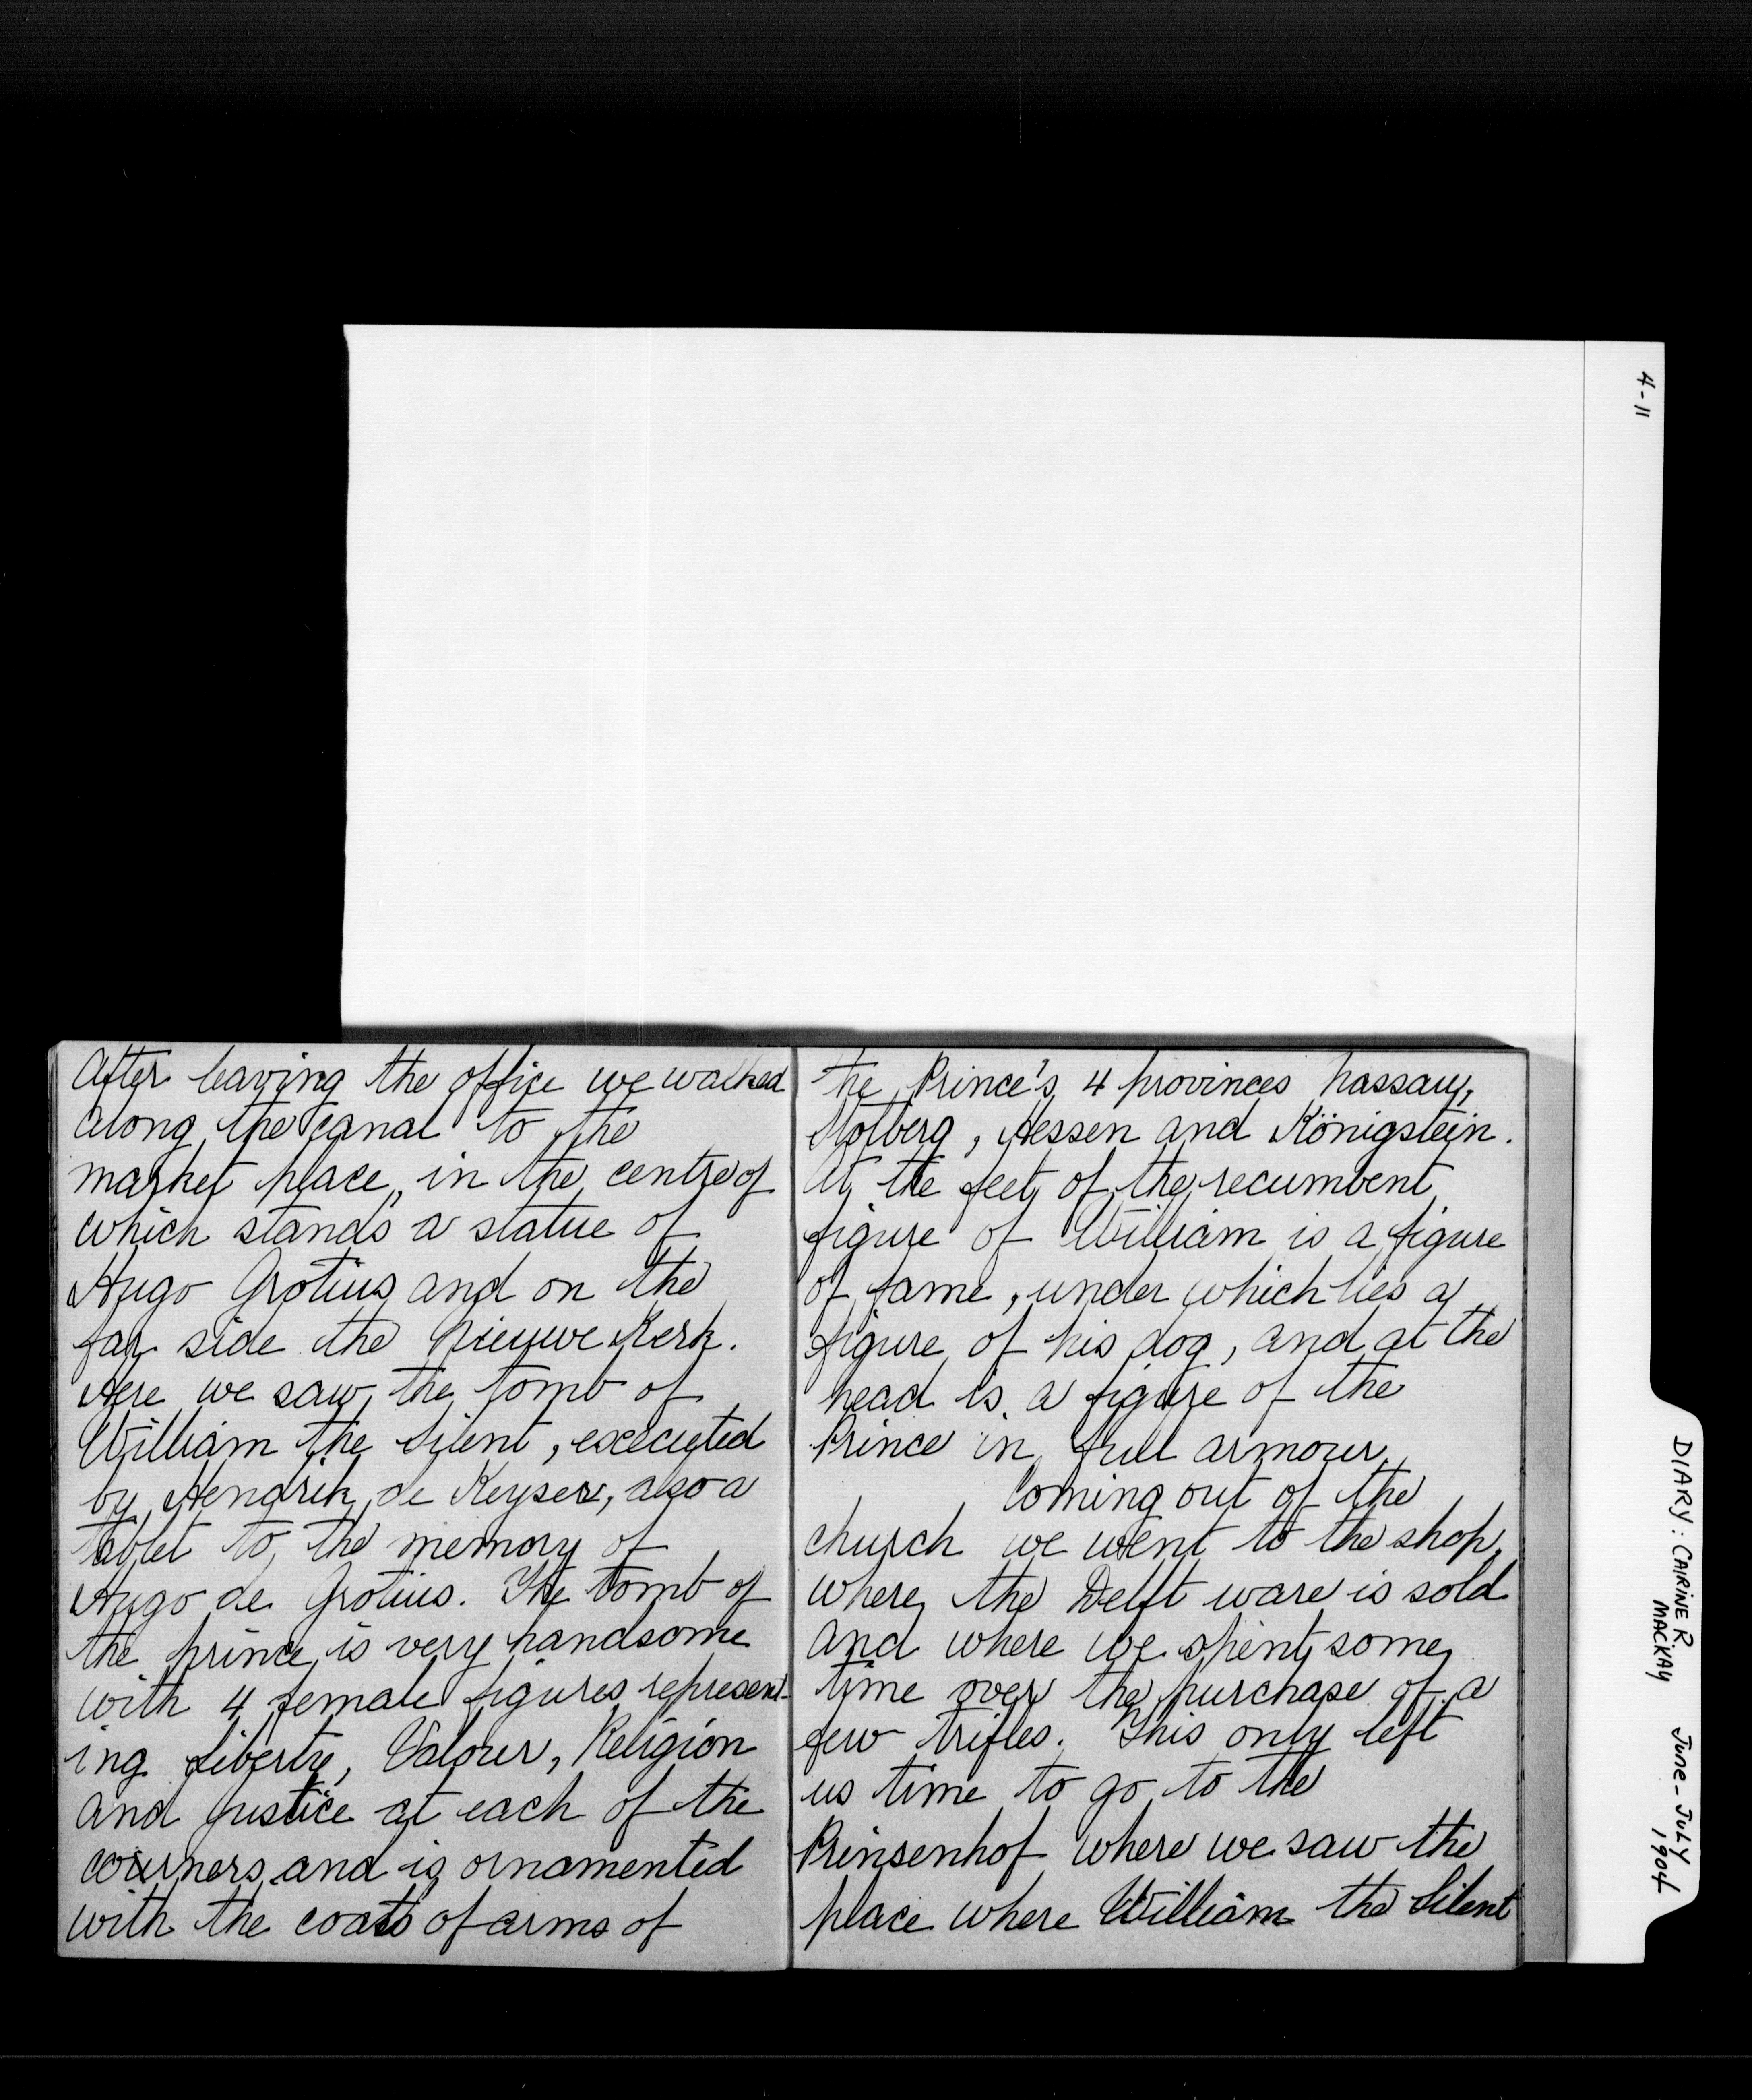 After leaving the office we walked
along the canal to the
market place, in the centre of
which stands a statue of
Hugo Grotius and on the
far side the Nieuwe Kerk.
Here we saw the tomb of
William the Silent, executed
by Hendrik de Keyser, also a
tablet to the memory of
Hugo de Grotius. The tomb of
the prince is very handsome
with 4 female figures represent-
ing Liberty, Valour, Religion
and Justice at each of the
courners and is ornamented
with the coats of arms of
the Prince's 4 provinces Nassau,
Stolberg, Hessen and Königstein.
At the feet of the recumbent
figure of William is a figure
of fame, under which lies a
figure of his dog, and at the
head is a figure of the
Prince in full armour.
Coming out of the
church we went to the shop
where the Delft ware is sold
and where we spent some
time over the purchase of a
few trifles. This only left
us time to go to the
Prinsenhof where we saw the
place where William the Silent
4-11
DIARY: CARINE R.
MACKAY
June - July
1904